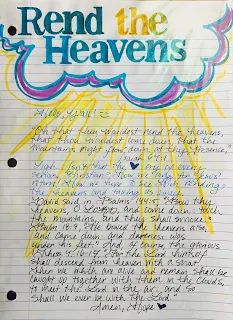 Rend the
Heavens
Hello, Y'all!
"Oh that thou wouldest rend the heavens,
that thou wouldest come down, that the
mountains might flow down at thy presence,"
Isaiah 64:1
Yeah. Isn't that the cry of every
serious Christian? How we long for Jesus'
return! How we desire to see Him rending
the heavens and taking us home.
David said in Psalms 144:5, "Bow thy
heavens, O LORD, and come down: touch
the mountains, and they shall smoke."
Psalm 18:9, "He bowed the heavens also,
and came down: and darkness was
under his feet." And, of course, the glorious
1 Thess. 4:16-17, "For the Lord himself
shall descend from heaven with a shout
then we which are alive and remain shall be
caught up together with them in the clouds,
to meet the Lord in the air: and so
shall we ever be with the Lord."
Amen,